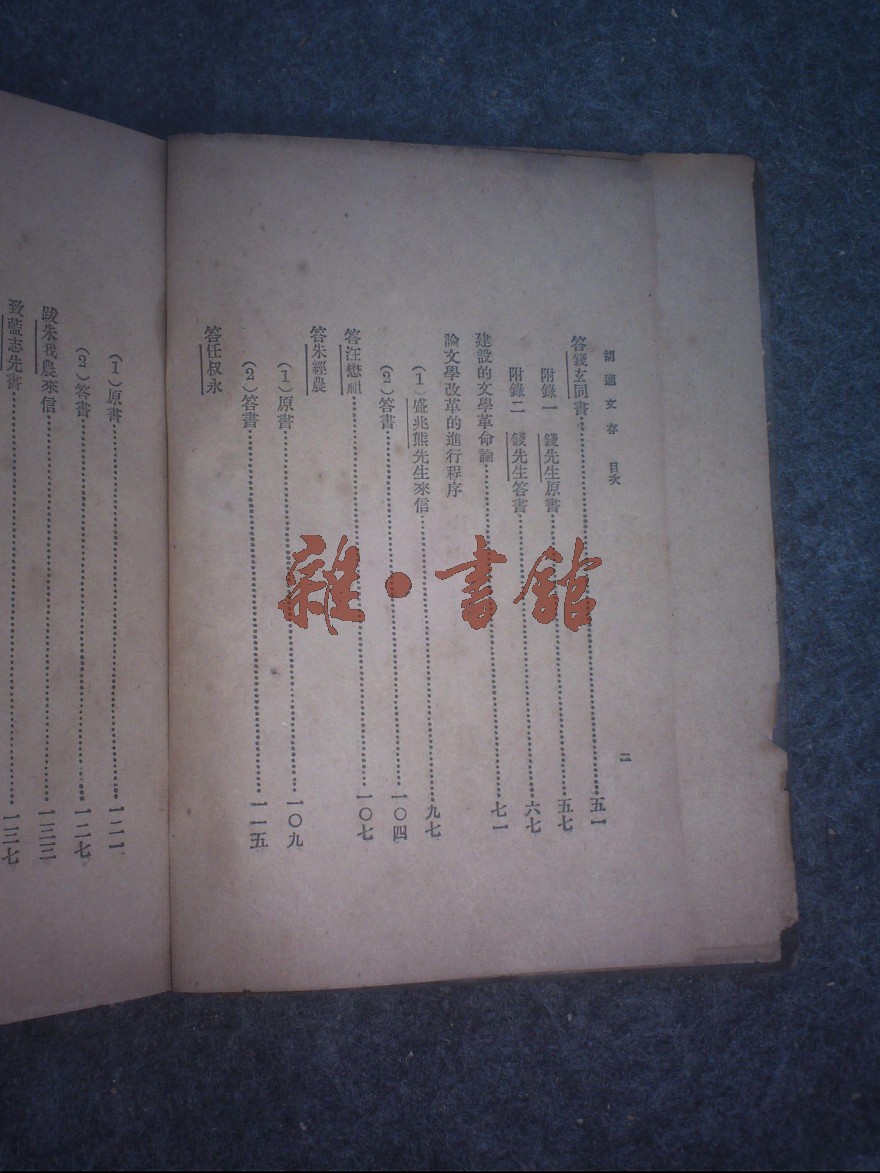 胡適文存　目次
二
答錢玄同書……五一
附錄一　錢先生原書……五七
附錄二　錢先生答書……六七
建設的文學革命論……七一
論文學改革的進行程序
（1）盛兆熊先生來信……九七
（2）答書……一〇四
答汪懋祖……一〇七
答朱經農
（1）原書……一〇九
（2）答書……一一五
答任叔永
（1）原書……一二一
（2）答書……一二七
跋朱我農來信……一三三
致藍志先書……一三七
雜·書館